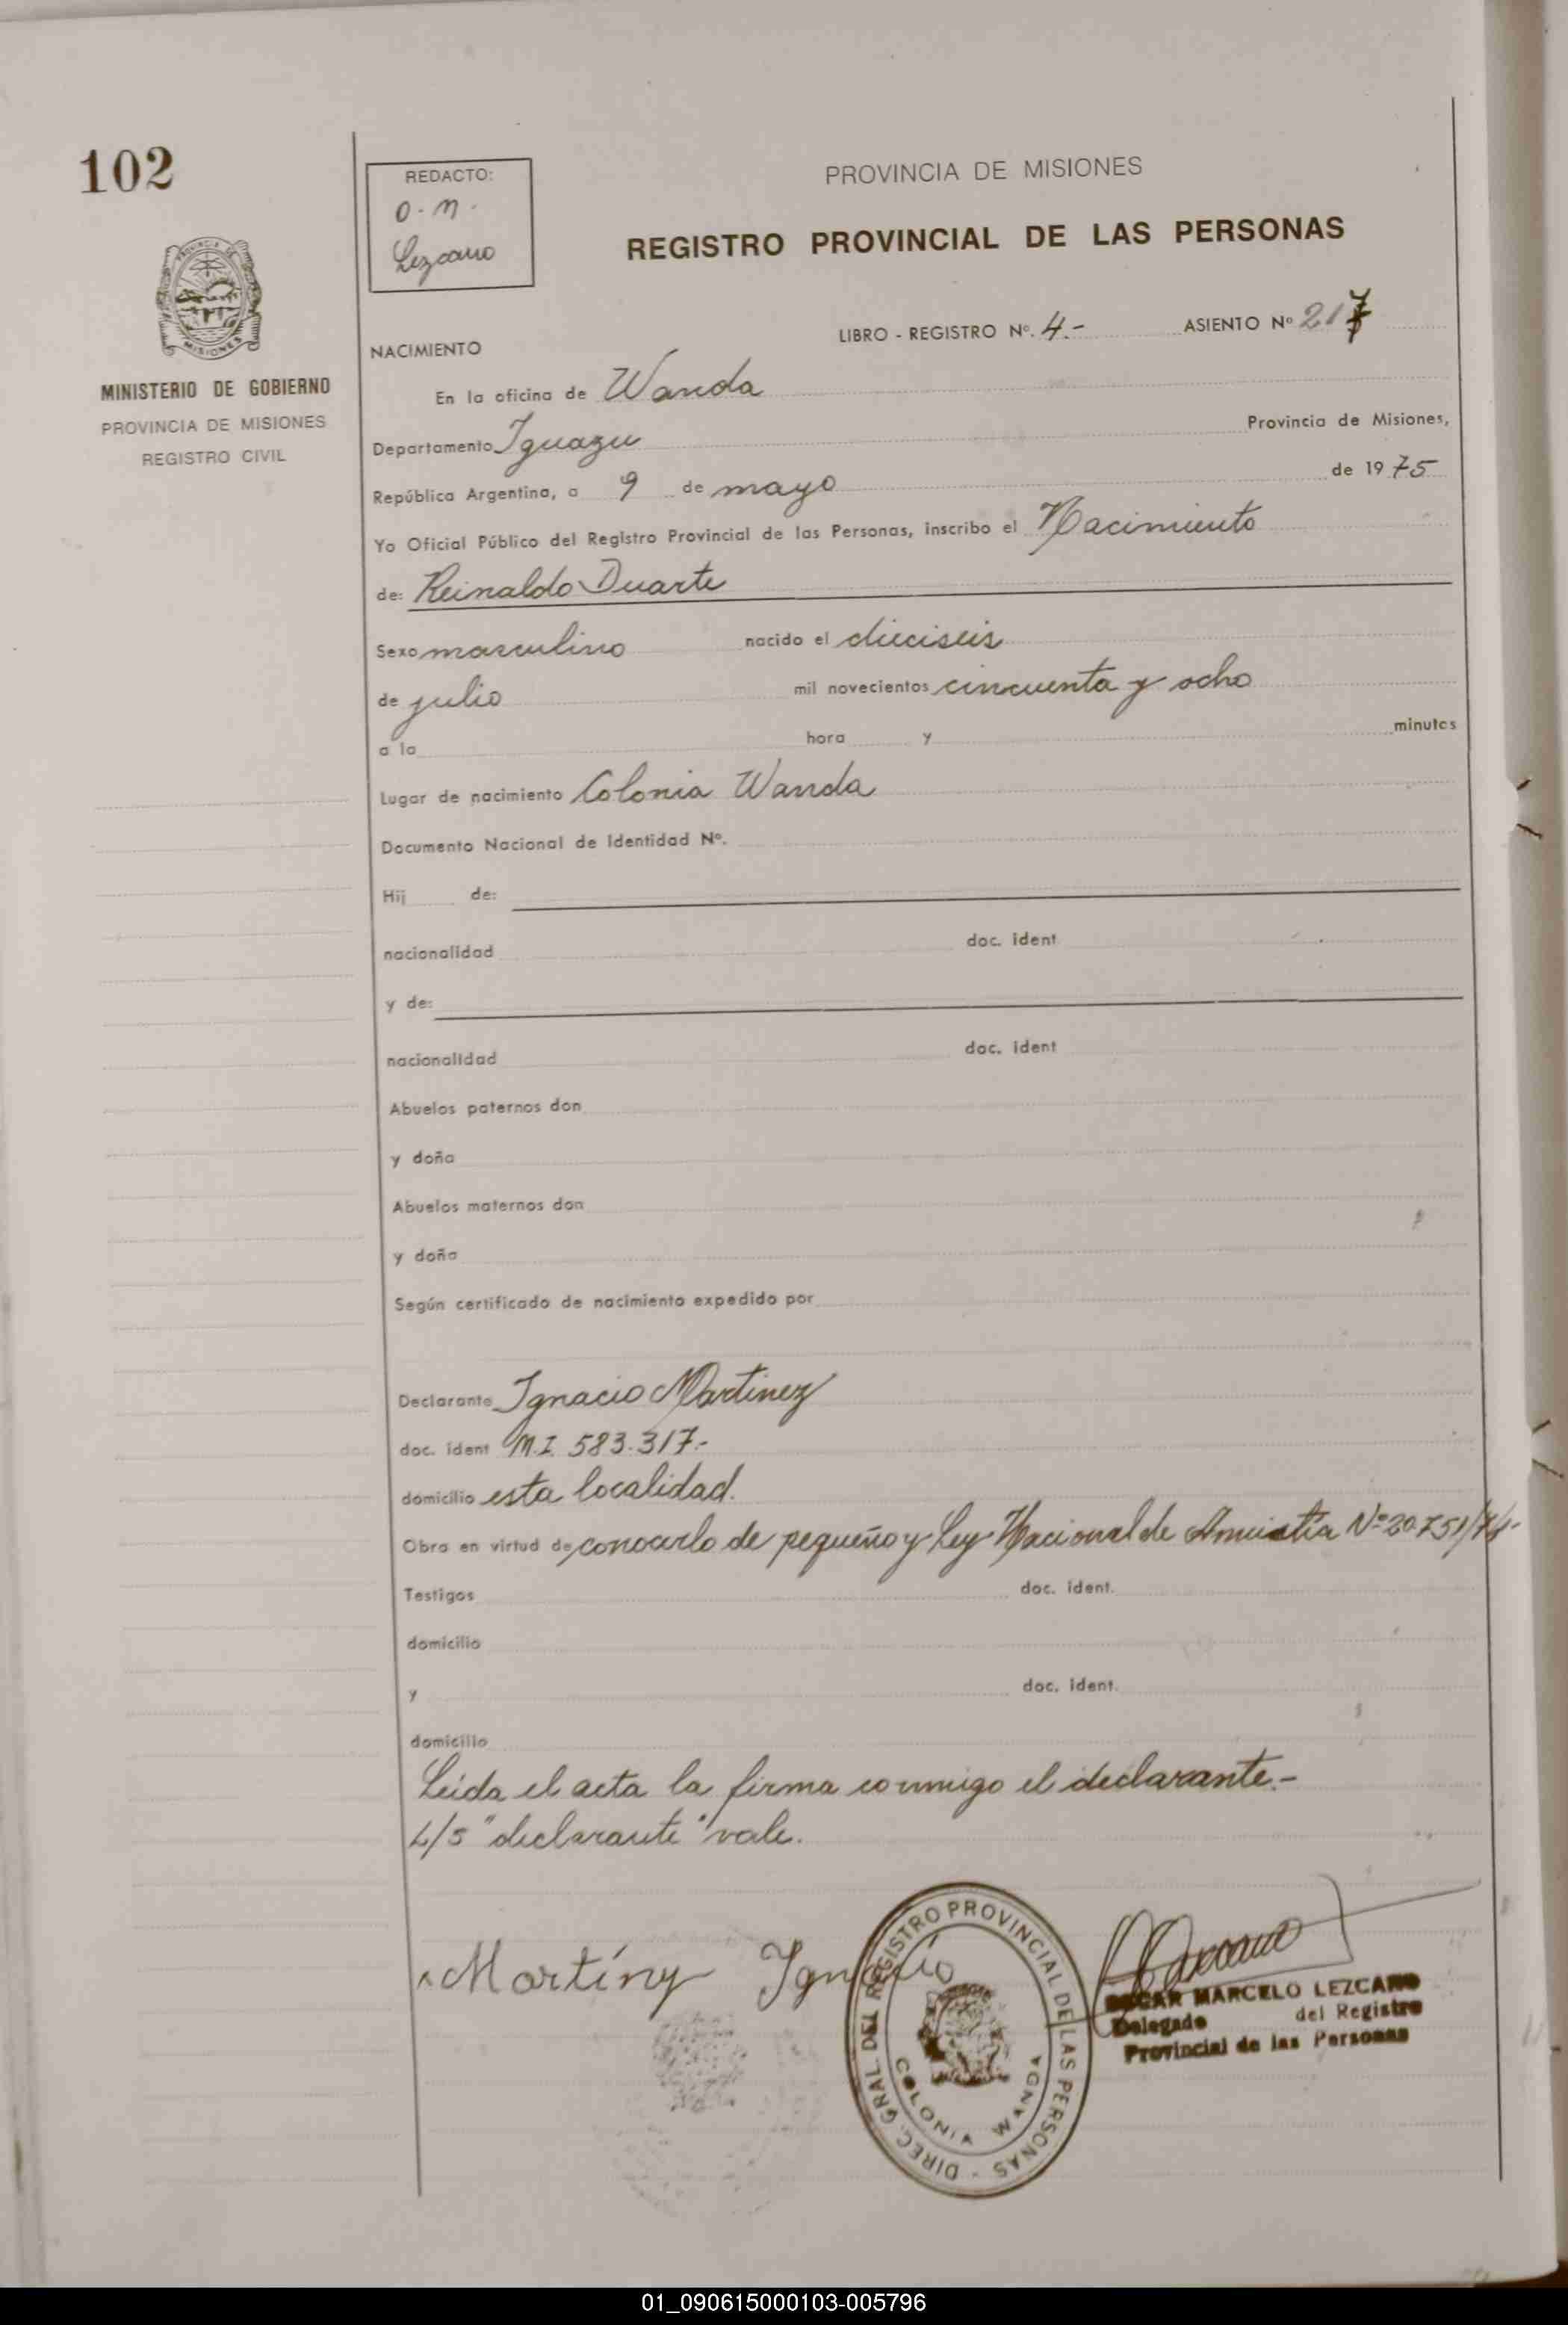 102
REDACTO:
O. M.
Lezcano
PROVINCIA DE MISIONES
REGISTRO PROVINCIAL DE LAS PERSONAS
MISIONES
MINISTERIO DE GOBIERNO
PROVINCIA DE MISIONES
REGISTRO CIVIL
LIBRO - REGISTRO Nº. 4.- ASIENTO Nº 217
NACIMIENTO
En la oficina de Wanda
Departamento Iguazu Provincia de Misiones,
República Argentina, a 9 de mayo de 1975
Yo Oficial Público del Registro Provincial de las Personas, inscribo el Nacimiento
de: Reinaldo Duarte
Sexo masculino nacido el dieciseis
de julio mil novecientos cincuenta y ocho
a la hora y minutos
Lugar de nacimiento Colonia Wanda
Documento Nacional de Identidad Nº.
Hij de:
nacionalidad doc. ident
y de:
nacionalidad doc. ident
Abuelos paternos don
y doña
Abuelos maternos don
y doña
Según certificado de nacimiento expedido por
Declarante Ignacio Martinez
doc. ident M.I. 583.317.-
domicilio esta localidad.
Obra en virtud de conocerlo de pequeño y Ley Nacional de Amnistía Nº 20.751/74.-
Testigos doc. ident.
domicilio
y doc. ident.
domicilio
Leída el acta la firma conmigo el declarante.-
L/S "declarante" vale.
Martínz Ignacio
DIREC. GRAL. DEL REGISTRO PROVINCIAL DE LAS PERSONAS -
COLONIA WANDA
OSCAR MARCELO LEZCANO
Delegado del Registro
Provincial de las Personas
01_090615000103-005796